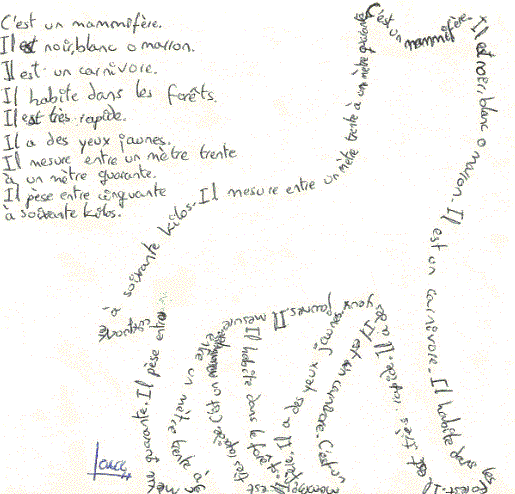 C'est un mammifère.
Il est noir, blanc o marron.
Il est un carnivore.
Il habite dans les forêts.
Il est très rapide.
Il a des yeux jaunes.
Il mesure entre un mètre trente
à un mètre quarante.
Il pèse entre cinquante
à soixante kilos.
C'est un mammifère. Il est noir, blanc o marron. Il est un carnivore. Il habite dans les forest. Il est très rapide. Il a des yeux jaunes. Il mesure entre un mètre trente à un mètre quarante. Il pèse entre cinquante à soixante kilos. Il mesure entre un mètre trente à un mètre quarante
C'est un mammifère. Il est un carnivore. Il habite dans le forêts. Il est très rapide. Il a des yeux jaunes.